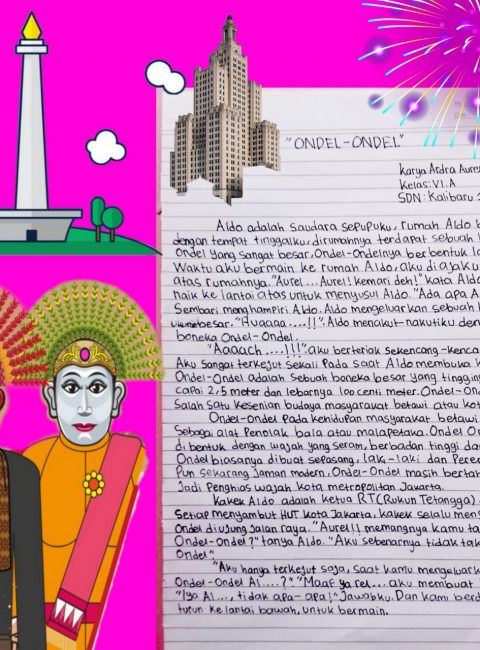 "ONDEL-ONDEL"
Karya Ardra Aure
Kelas: VI.A
SDN: Kalibaru
Aldo adalah saudara sepupuku, rumah Aldo b
dengan tempat tinggalku, dirumahnya terdapat sebuah
Ondel yang sangat besar, Ondel-Ondelnya berbentuk l
Waktu aku bermain ke rumah Aldo, aku di ajaku
atas rumahnya. "Aurel... Aurel! kemari deh!" kata Aldo
naik ke lantai atas untuk menyusul Aldo. "Ada apa A
Sembari menghampiri Aldo. Aldo mengeluarkan sebuah
besar. "Auaaaa....!!" Aldo menakut-nakutiku den
boneka Ondel-Ondel.
"Aaaach....!!!" aku berteriak sekencang-kenca
Aku sangat terkejut sekali Pada saat Aldo membuka k
Ondel-Ondel adalah sebuah boneka besar yang tinggin
capai 2,5 meter dan lebarnya 100 centi meter. Ondel-On
Salah satu kesenian budaya masyarakat betawi atau kot
Ondel-Ondel Pada kehidupan masyarakat betawi
Sebagai alat Penolak bala atau malapetaka. Ondel O
di bentuk dengan wajah yang seram, berbadan tinggi da
Ondel biasanya dibuat sepasang, laki-laki dan Pere
Pun sekarang Jaman modern, Ondel-Ondel masih bertah
Jadi Penghios wajah kota metropolitan Jakarta.
Kakek Aldo adalah ketua RT(Rukun Tetangga)
Setiap menyambut HUT Kota Jakarta, kakek selalu mens
Ondel di ujung Jalan raya. "Aurel!! memangnya kamu ta
Ondel-Ondel?" tanya Aldo. "Aku sebenarnya tidak tak
Ondel".
"Aku hanya terkejut saja, Saat kamu mengeluark
Ondel-Ondel Al....?". "Maaf ya rel... aku membuat
"Iya Al..., tidak apa-apa!" Jawabku. Dan kami berd
turun ke lantai bawah, untuk bermain.